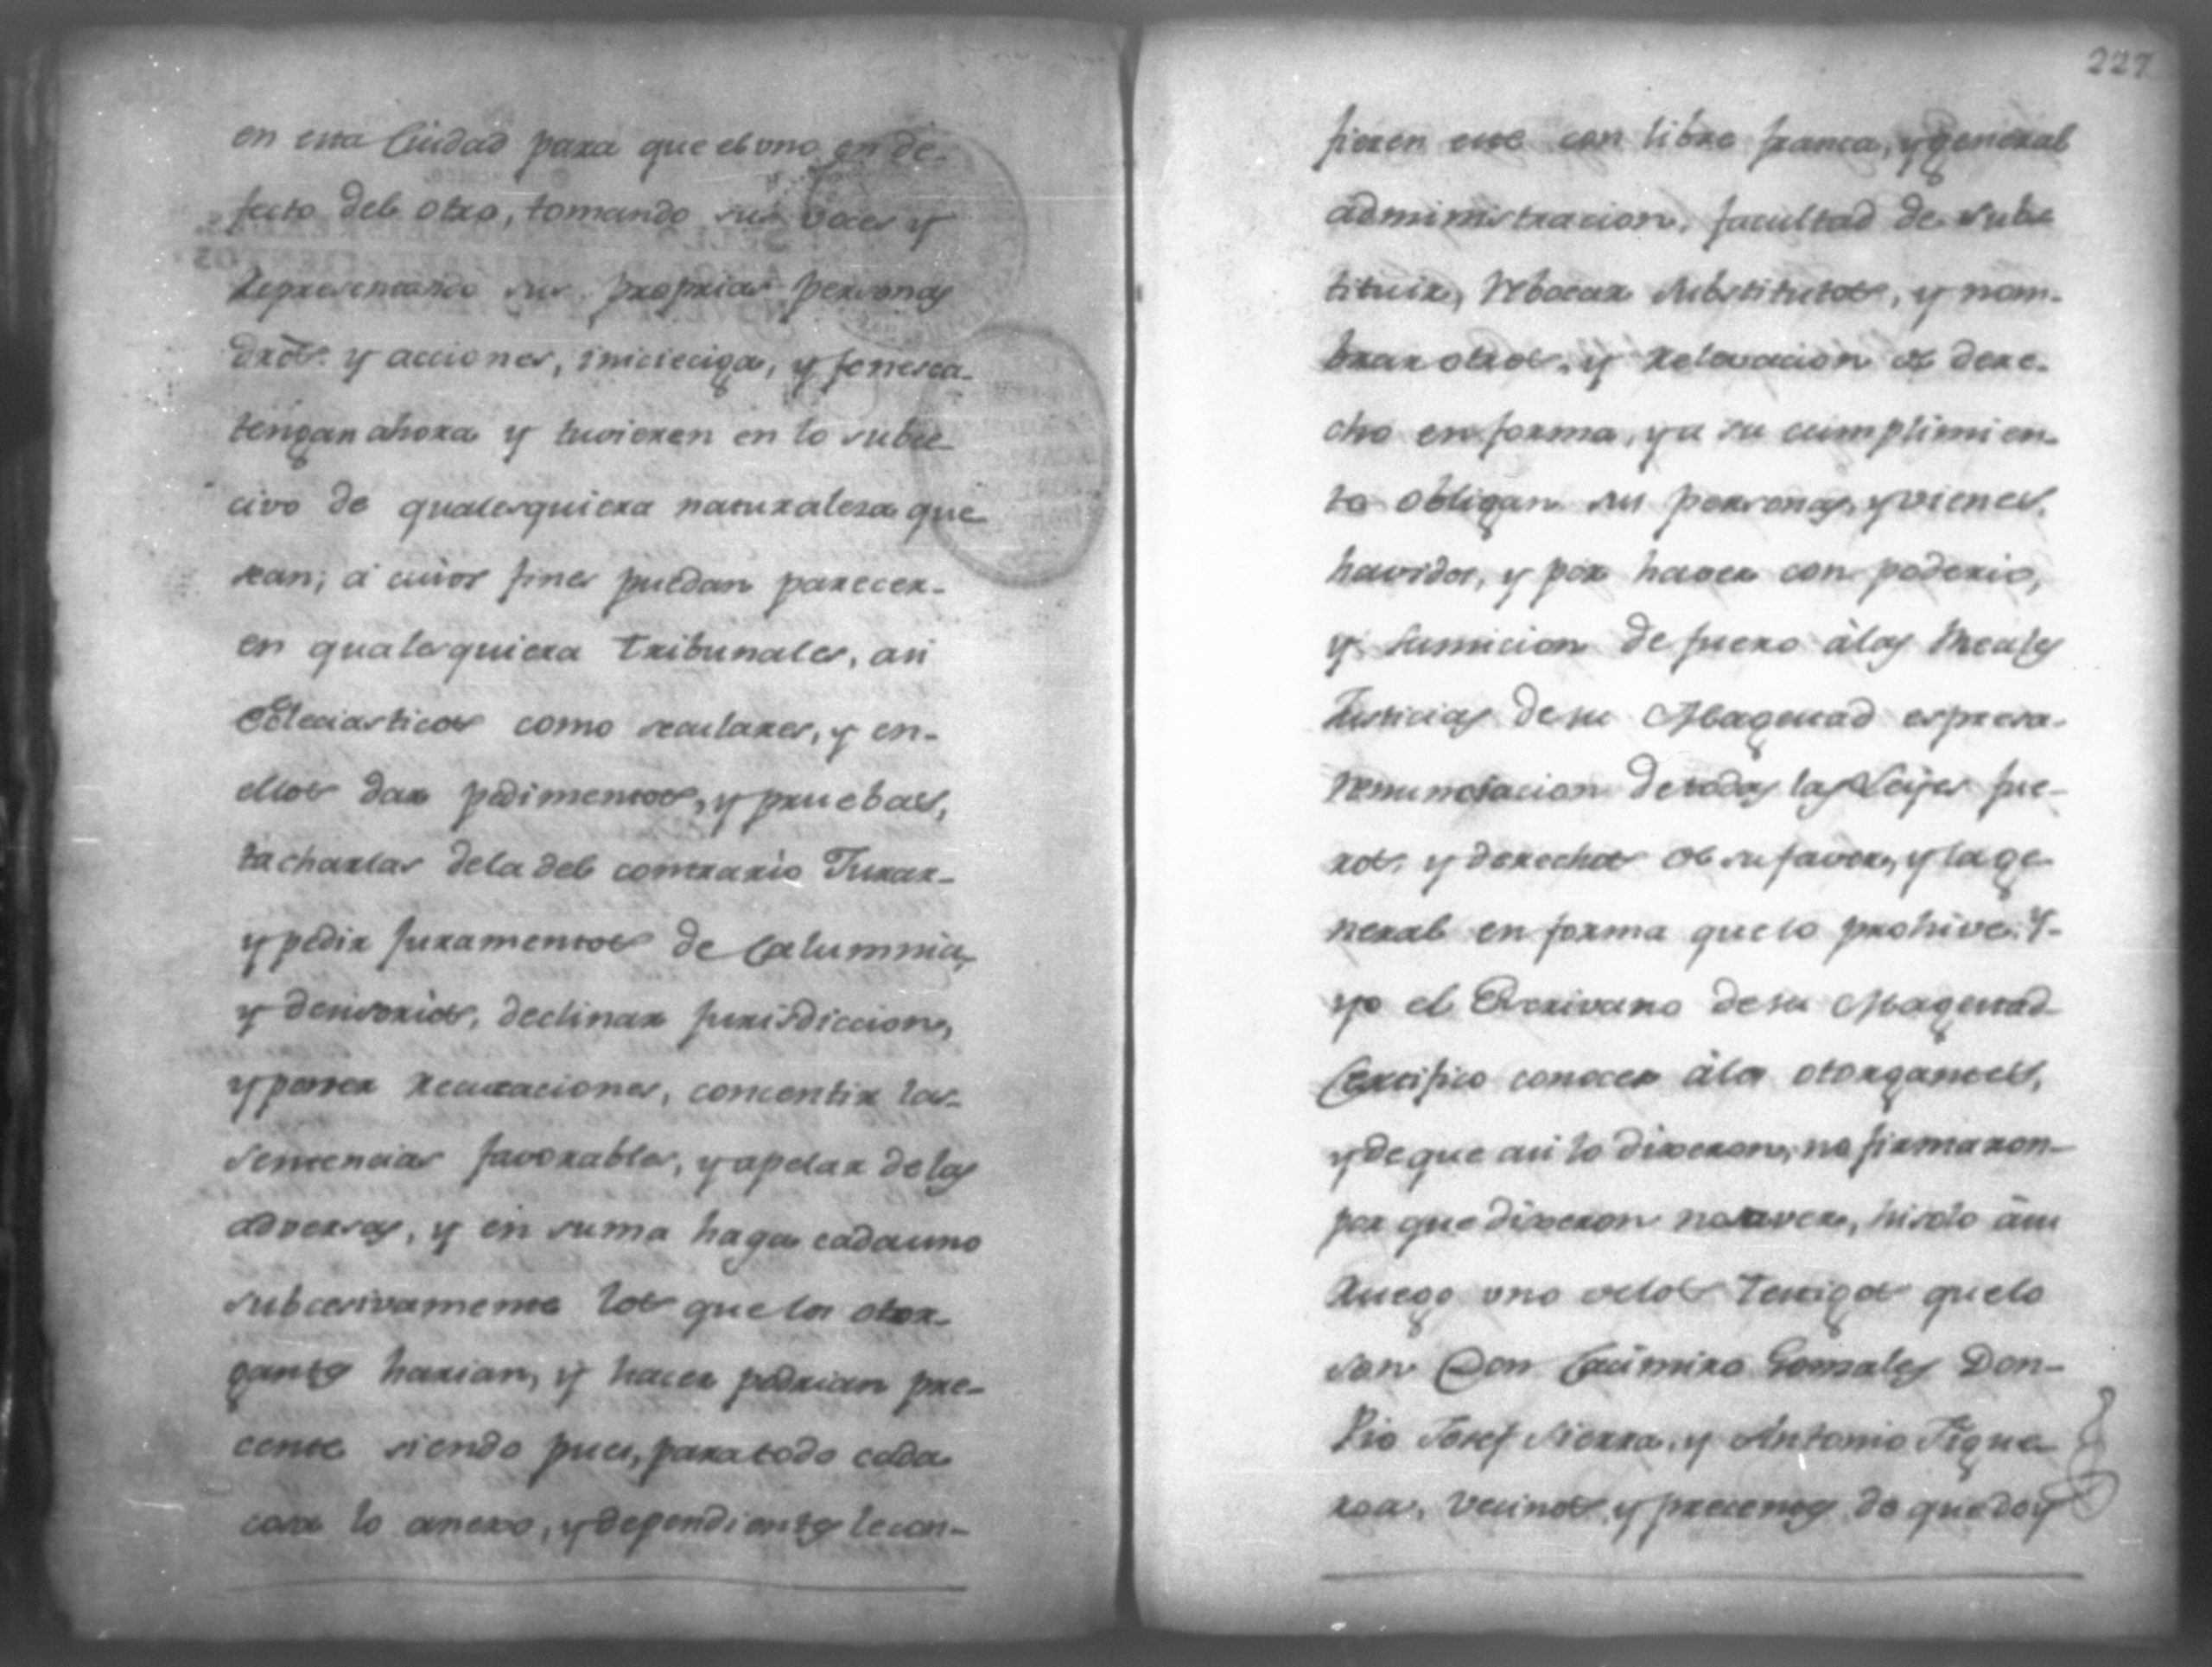 en esta Ciudad para que el uno en de-
fecto del otro, tomando sus voces y
Representando sus proprias personas
dros. y acciones, inicie ciga, y fenesca
tengan ahora y tuvieren en lo subce
civo de qualesquiera naturalesa que
sean; á cuios fines puedan parecer-
en qualesquiera Tribunales, asi
Ecleciasticos como seculares, y en-
ellos dar pedimentos, y pruebas,
tacharlas dela del contrario Jurar-
y pedir juramentos de Calumnia,
y decisorios, declinar jurisdiccion,
y poner Recusaciones, concentir las-
sentencias favorables, y apelar de las
adversas, y en suma haga cada uno
subcesivamente los que los otor-
gantes harian, y hacer podrian pre-
cente siendo pues, para todo cada
cosa lo anexo, y dependientes lecon-
227
fieren este con libre franca, y general
administracion, facultad de subs
tituir, rebocar substitutos, y nom-
brar otros, y relevacion de dere-
cho en forma, y a su cumplimien-
to obligan sus personas, y vienes,
havidos, y por haver con poderio,
y sumicion de fuero à las Reales
Justicias de su Magestad espresa-
renunciacion de todas las Leyes fue-
ros, y derechos de su favor, y la ge-
neral en forma que lo prohive. Y-
yo el Escrivano de su Magestad
Certifico conocer à los otorgantes,
y de que asi lo dixeron, no firmaron-
por que dixeron no saver, hisolo à su
Ruego uno de los Testigos que lo
son Don Casimiro Gonsales Don-
Pio Josef Sierra, y Antonio Figue-
roa, Vecinos, y precentes de que doy